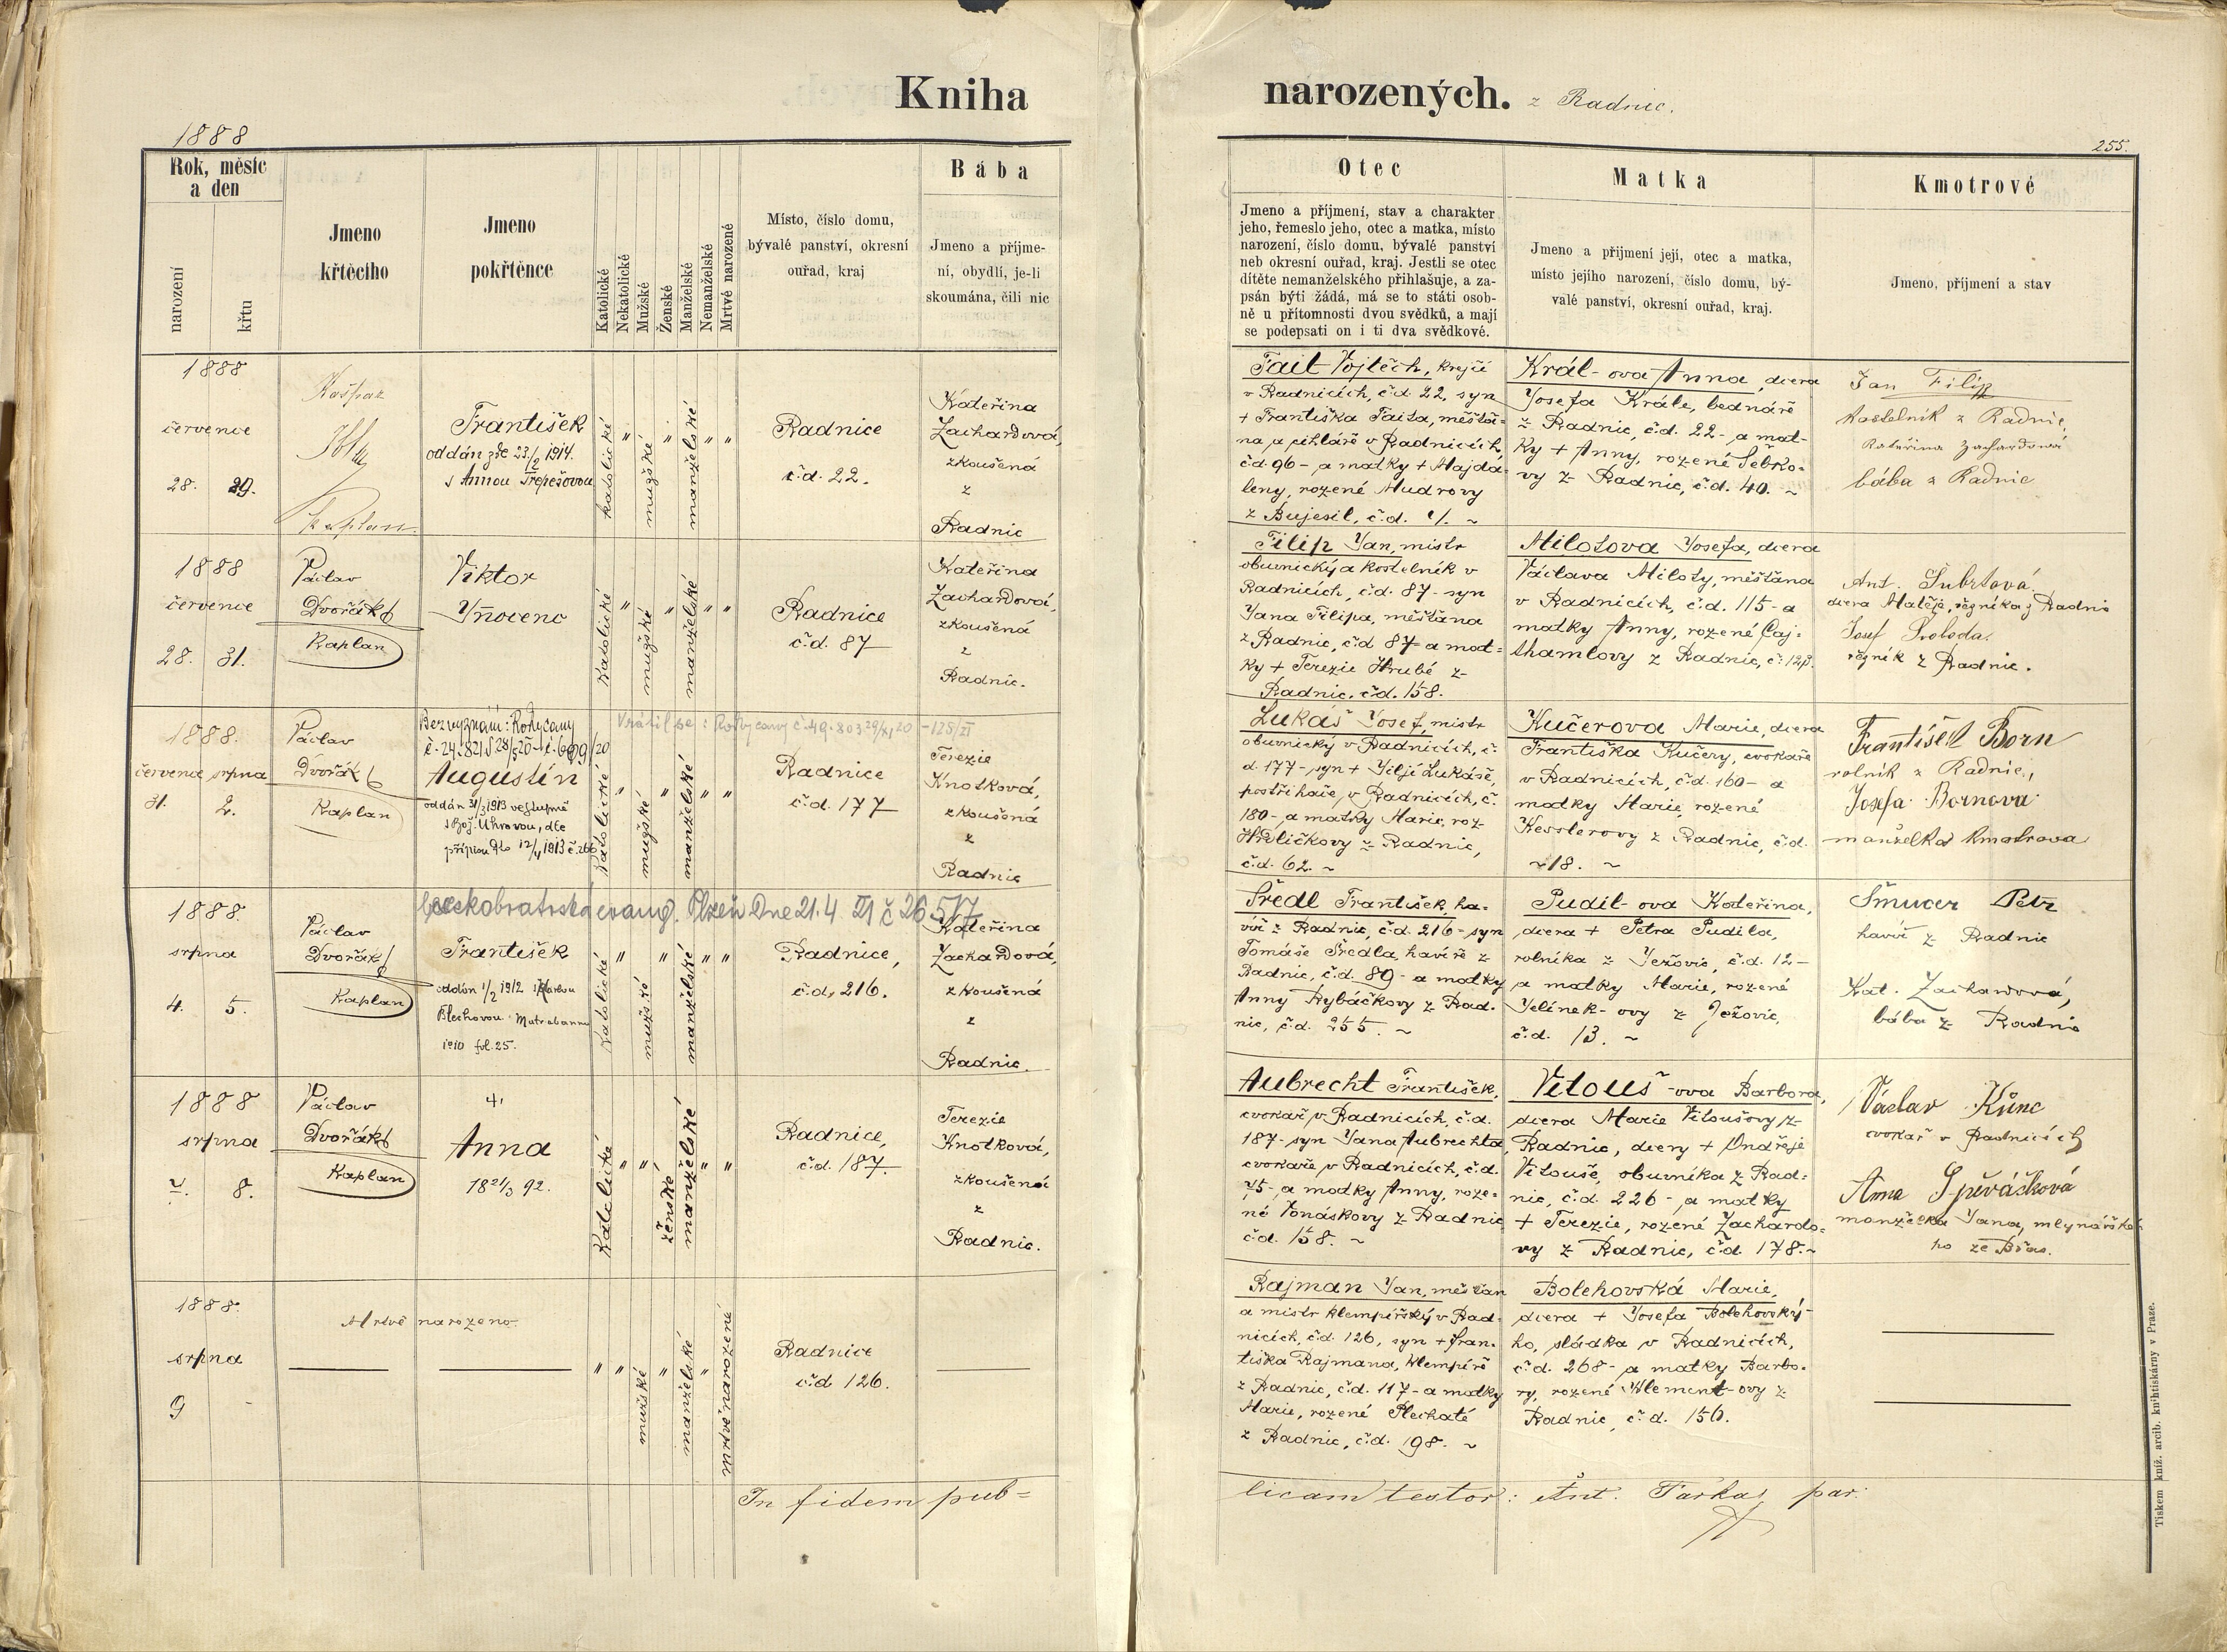 Kniha
narozených. z Radnic.
1888
255.
Rok, měsíc
a den
narození
křtu
Jmeno
křtěcího
Jmeno
pokřtěnce
Katolické
Nekatolické
Mužské
Ženské
Manželské
Nemanželské
Mrtvé narozené
Místo, číslo domu,
bývalé panství, okresní
ouřad, kraj
Bába
Jmeno a příjme-
ní, obydlí, je-li
skoumána, čili nic
Otec
Jmeno a příjmení, stav a charakter
jeho, řemeslo jeho, otec a matka, místo
narození, číslo domu, bývalé panství
neb okresní ouřad, kraj. Jestli se otec
dítěte nemanželského přihlašuje, a za-
psán býti žádá, má se to státi osob-
ně u přítomnosti dvou svědků, a mají
se podepsati on i ti dva svědkové.
Matka
Jmeno a přijmení její, otec a matka,
místo jejího narození, číslo domu, bý-
valé panství, okresní ouřad, kraj.
Kmotrové
Jmeno, příjmení a stav
1888
července
28. 29.
Kašpar
Kaplan.
František
oddán zde 23./2 1914.
s Annou Třepešovou
katolické " mužské " manželské " "
Radnice
č.d. 22.
Kateřina
Zachardová,
zkoušená
z
Radnic
Tait Vojtěch, krejčí
v Radnicích, č.d. 22, syn
+ Františka Taita, měšťa=
na a cihláře v Radnicích,
č.d. 96 - a matky + Majda=
leny, rozené Mudrovy
z Bujesil, č.d. 1. ~
Král-ova Anna, dcera
Josefa Krále, bednáře
z Radnic, č.d. 22 - a mat-
ky + Anny, rozené Šebko=
vy z Radnic, č.d. 40. ~
Jan Filip
Kostelník z Radnic,
Kateřina Zachardová
bába z Radnic
1888
července
28. 31.
Václav
Dvořák
Kaplan
Viktor
Ynocenc
Katolické " mužské " manželské " "
Radnice
č.d. 87
Kateřina
Zachardová,
zkoušená
z
Radnic.
Filip Jan, mistr
obuvnický a kostelník v
Radnicích, č.d. 87 - syn
Jana Filipa, měšťana
z Radnic, č.d. 87 - a mat=
ky + Terezie Hrubé z
Radnic, č.d. 158.
Milotova Josefa, dcera
Václava Miloty, měšťana
v Radnicích, č.d. 115 - a
matky Anny, rozené Caj=
thamlovy z Radnic, č. 123.
Ant. Šubrtová
dcera Matěje, řezníka z Radnic
Josef Svoboda,
řezník z Radnic.
1888.
července srpna
31. 2.
Václav
Dvořák
Kaplan
Bez vyznání: Rokycany
Vrátil se: Rokycany
Augustin
oddán 31/3 1913 ve Stupně
s Bož. Uhrovou, dle
přípisu Dto 12/4 1913 č. 266
Katolické " mužské " manželské " "
Radnice
č.d. 177
Terezie
Knotková,
zkoušená
z
Radnic
Lukáš Josef, mistr
obuvnický v Radnicích, č.
d. 177 - syn + Jiljí Lukáše,
postřihače, v Radnicích, č.
180 - a matky Marie, roz.
Hrdličkovy z Radnic,
č.d. 62. ~
Kučerova Marie, dcera
Františka Kučery, cvokaře
v Radnicích, č.d. 160 - a
matky Marie, rozené
Kesslerovy z Radnic, č.d.
~ 18. ~
František Born
rolník z Radnic,
Josefa Bornova
manželka kmotrova
českobratrské evang. Plzeň Dne 21.4. 21 č 26517
1888.
srpna
4. 5.
Václav
Dvořák
Kaplan
František
oddán 1/2 1912 s Karlou
Blechovou Matrabanns
1910 fol. 25.
Katolické " mužské " manželské " "
Radnice,
č.d. 216.
Kateřina
Zachardová,
zkoušená
z
Radnic.
Šredl František, ha=
víř z Radnic, č.d. 216 - syn
Tomáše Šredla, havíře z
Radnic, č.d. 89 - a matky
Anny Rybáčkovy z Rad=
nic, č.d. 255. ~
Pudil-ova Kateřina,
dcera + Petra Pudila,
rolníka z Ježovic, č.d. 12 -
a matky Marie, rozené
Jelínek-ovy z Ježovic,
č.d. 13. ~
Šmucer Petr
havíř z Radnic
Kat. Zachardová,
bába z Radnic
1888
srpna
7. 8.
Václav
Dvořák
Kaplan
Anna
18 21/3 92.
Katolické " " ženské manželské " "
Radnice,
č.d. 187.
Terezie
Knotková,
zkoušená
z
Radnic.
Aubrecht František,
cvokař v Radnicích, č.d.
187 - syn Jana Aubrechta,
cvokaře v Radnicích, č.d.
75 - a matky Anny, roze=
né Tonáskovy z Radnic
č.d. 158. ~
Vítouš-ova Barbora,
dcera Marie Vítoušovy z
Radnic, dcery + Ondřeje
Vítouše, obuvníka z Rad=
nic, č.d. 226 - a matky
+ Terezie, rozené Zachardo=
vy z Radnic, č.d. 178. ~
Václav Kůnc
cvokař v Radnicích
Anna Spěvášková
manželka Jana, mlynářské=
ho ze Břas.
1888.
srpna
9 -
Mrtvě narozeno.
" " mužské " manželské " mrtvé narozené
Radnice
č.d. 126.
Rajman Jan, měšťan
a mistr klempířský v Rad=
nicích, č.d. 126, syn + Fran=
tiška Rajmana, klempíře
z Radnic, č.d. 117 - a matky
Marie, rozené Plechaté
z Radnic, č.d. 198. ~
Bolehovská Marie,
dcera + Josefa Bolehovský-
ho, sládka v Radnicích,
č.d. 268 - a matky Barbo=
ry, rozené Klement-ovy z
Radnic, č.d. 156.
In fidem pub=
licam testor: Ant. Farkač par.
Tiskem kníž. arcib. knihtiskárny v Praze.